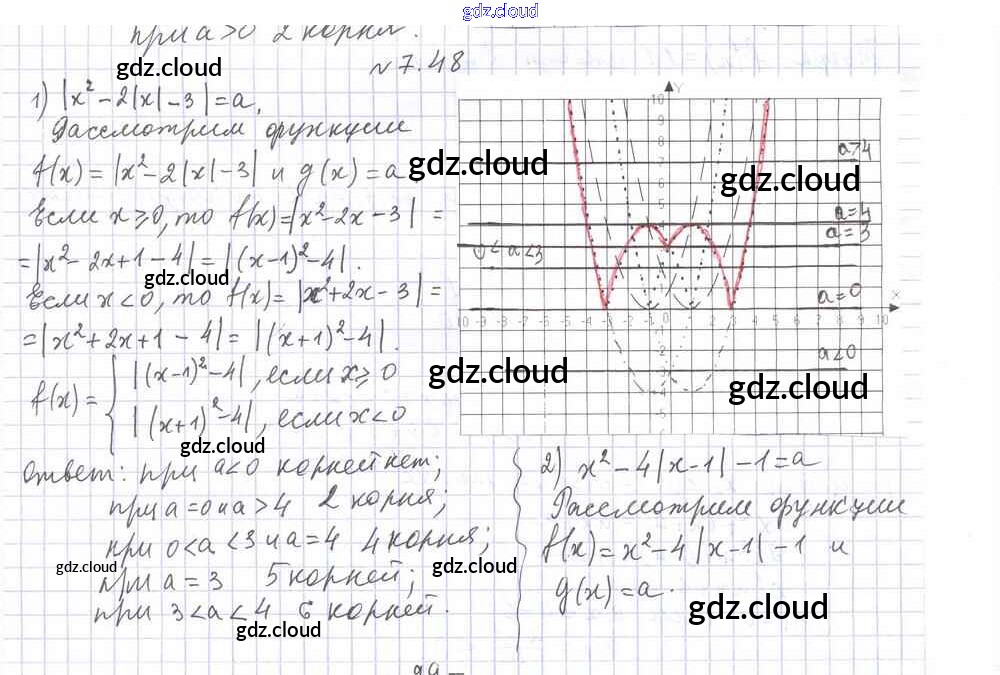 gdz.cloud
при a>0 2 корня.
№ 7.48
gdz.cloud
1) |x² - 2|x| - 3| = a.
Рассмотрим функции
f(x) = |x² - 2|x| - 3| и g(x) = a
gdz.cloud
Если x ≥ 0, то f(x) = |x² - 2x - 3| =
= |x² - 2x + 1 - 4| = |(x-1)² - 4|.
gdz.cloud
Если x < 0, то f(x) = |x² + 2x - 3| =
= |x² + 2x + 1 - 4| = |(x+1)² - 4|.
f(x) = { |(x-1)² - 4|, если x ≥ 0
|(x+1)² - 4|, если x < 0
gdz.cloud
Ответ: при a<0 корней нет;
при a=0 и a>4 2 корня;
при 0<a<3 и a=4 4 корня;
gdz.cloud
при a = 3 5 корней;
при 3<a<4 6 корней.
gdz.cloud
Y
a>4
gdz.cloud
a=4
a=3
0<a<3
a=0
X
-10 -9 -8 -7 -6 -5 -4 -3 -2 -1 0 1 2 3 4 5 6 7 8 9 10
a<0
gdz.cloud
gdz.cloud
2) x² - 4|x-1| - 1 = a
Рассмотрим функции
f(x) = x² - 4|x-1| - 1 и
gdz.cloud
g(x) = a.
gdz.cloud